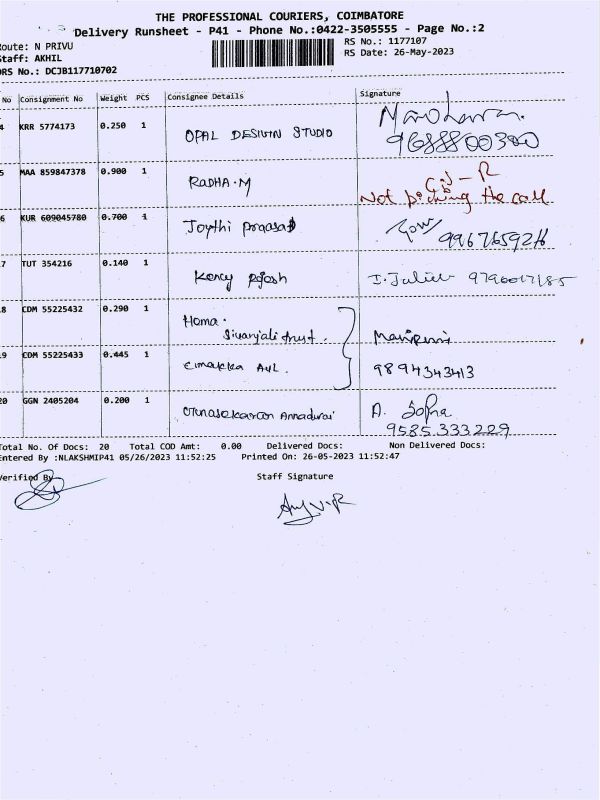 THE PROFESSIONAL COURIERS, COIMBATORE
Delivery Runsheet - P41 - Phone No.:0422-3505555 - Page No.:2
Route: N PRIVU
RS No.: 1177107
Staff: AKHIL
RS Date: 26-May-2023
DRS No.: DCJB117710702
No Consignment No Weight PCS Consignee Details Signature
4 KRR 5774173 0.250 1 OPAL DESIGN STUDIO
9688800300
5 MAA 859847378 0.900 1 RADHA.M
Not picking the call
6 KUR 609045780 0.700 1 Joythi
7 TUT 354216 0.140 1 9790017185
8 CDM 55225432 0.290 1 Homa.
Sivanjali trust.
9 CDM 55225433 0.445 1 9894343413
20 GGN 2405204 0.200 1 A. Sofna
9585333229
Total No. Of Docs: 20 Total COD Amt: 0.00 Delivered Docs: Non Delivered Docs:
Entered By :NLAKSHMIP41 05/26/2023 11:52:25 Printed On: 26-05-2023 11:52:47
Verified By Staff Signature